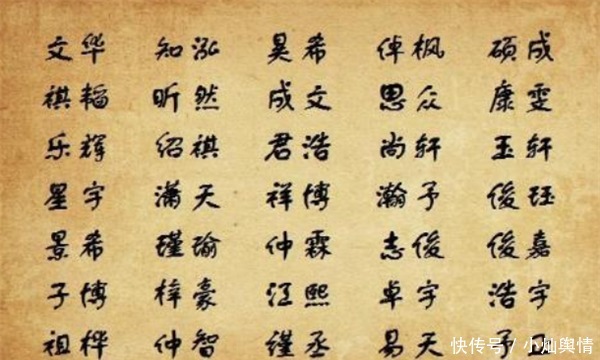 文华 知泓 昊希 倬枫 硕成
祺韬 昕然 成文 思众 康雯
乐辉 绍祺 君浩 尚轩 玉轩
星宇 潇天 祥博 瀚予 俊珏
景希 瑾瑜 仲霖 志俊 俊嘉
子博 梓豪 江熙 卓宇 浩宇
祖桦 仲智 瑾丞 易天
快传号/小灿舆情